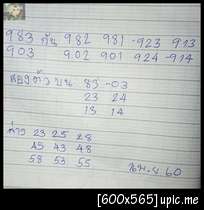 983 กัน 982 981 -923 913
903 902 901 924 -914
สองตัว บน 83 -03
23 24
13 14
ล่าง 23 25 28
45 43 48
58 53 55
60
[600x565] upic.me